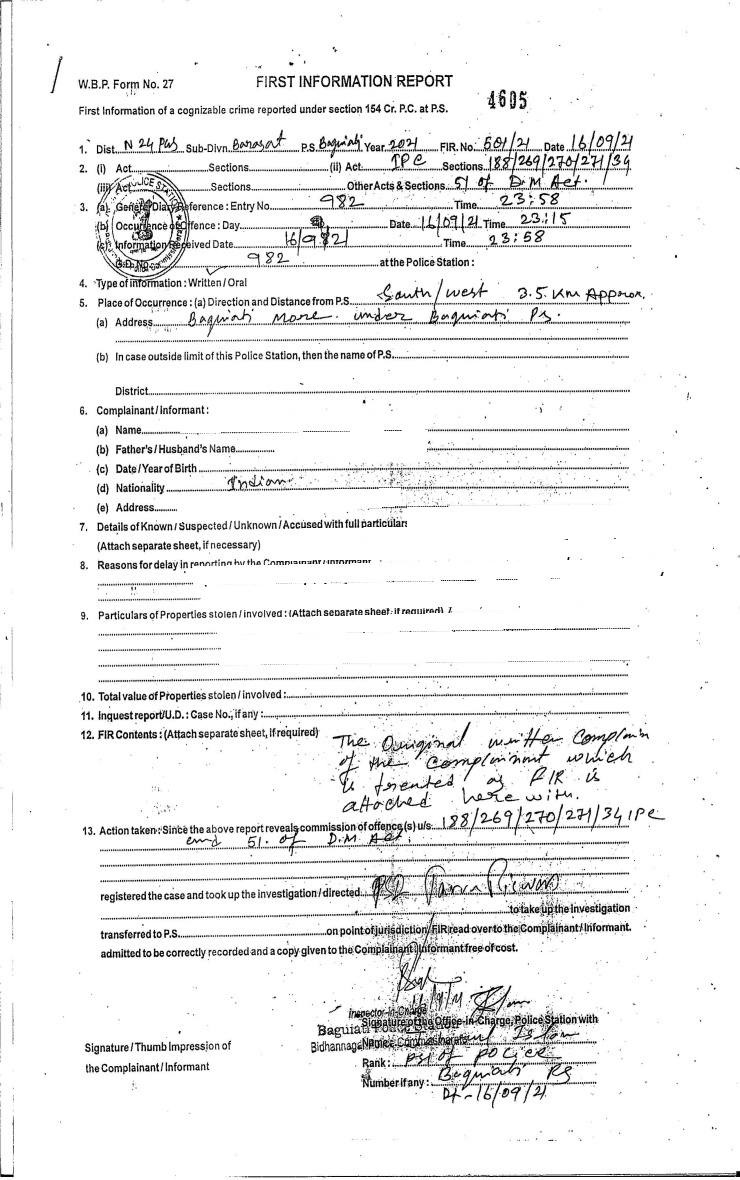 W.B.P. Form No. 27 FIRST INFORMATION REPORT
4605
First Information of a cognizable crime reported under section 154 Cr. P.C. at P.S.
1. Dist. N 24 Pgs Sub-Divn. Barasat P.S. Baguiati Year 2021 FIR. No. 501/21 Date 16/09/21
2. (i) Act Sections (ii) Act. IPC Sections 188/269/270/271/34
(iii) Act Sections Other Acts & Sections 51 of D.M Act.
3. (a) General Diary Reference : Entry No. 982 Time 23:58
(b) Occurence of Offence : Day Date 16/09/21 Time 23:15
(c) Information Received Date 16/09/21 Time 23:58
G.D. No. 982 at the Police Station :
4. Type of information : Written / Oral
5. Place of Occurrence : (a) Direction and Distance from P.S. South/west 3.5 Km Approx.
(a) Address Baguiati More under Baguiati Ps.
(b) In case outside limit of this Police Station, then the name of P.S.
District
6. Complainant / informant :
(a) Name
(b) Father's / Husband's Name
(c) Date / Year of Birth
(d) Nationality Indian
(e) Address
7. Details of Known / Suspected / Unknown / Accused with full particulars
(Attach separate sheet, if necessary)
8. Reasons for delay in reporting by the Complainant / Informant
9. Particulars of Properties stolen / involved : (Attach separate sheet if required)
10. Total value of Properties stolen / involved :
11. Inquest report/U.D. : Case No., if any :
12. FIR Contents : (Attach separate sheet, if required) The Original written Complain
of the Complainant which
is treated as FIR is
attached here with.
13. Action taken : Since the above report reveals commission of offence(s) u/s. 188/269/270/271/34 IPC
and 51. of D.M Act.
registered the case and took up the investigation / directed
to take up the investigation
transferred to P.S. on point of jurisdiction FIR read over to the Complainant / Informant.
admitted to be correctly recorded and a copy given to the Complainant / Informant free of cost.
Inspector-in-Charge
Signature of the Office-in-Charge, Police Station with
Baguiati Police Station
Bidhannagar Name : Commissionerate Islam
Signature / Thumb Impression of
Rank : of police
the Complainant / Informant
Number if any : Baguiati PS
Dt-16/09/21